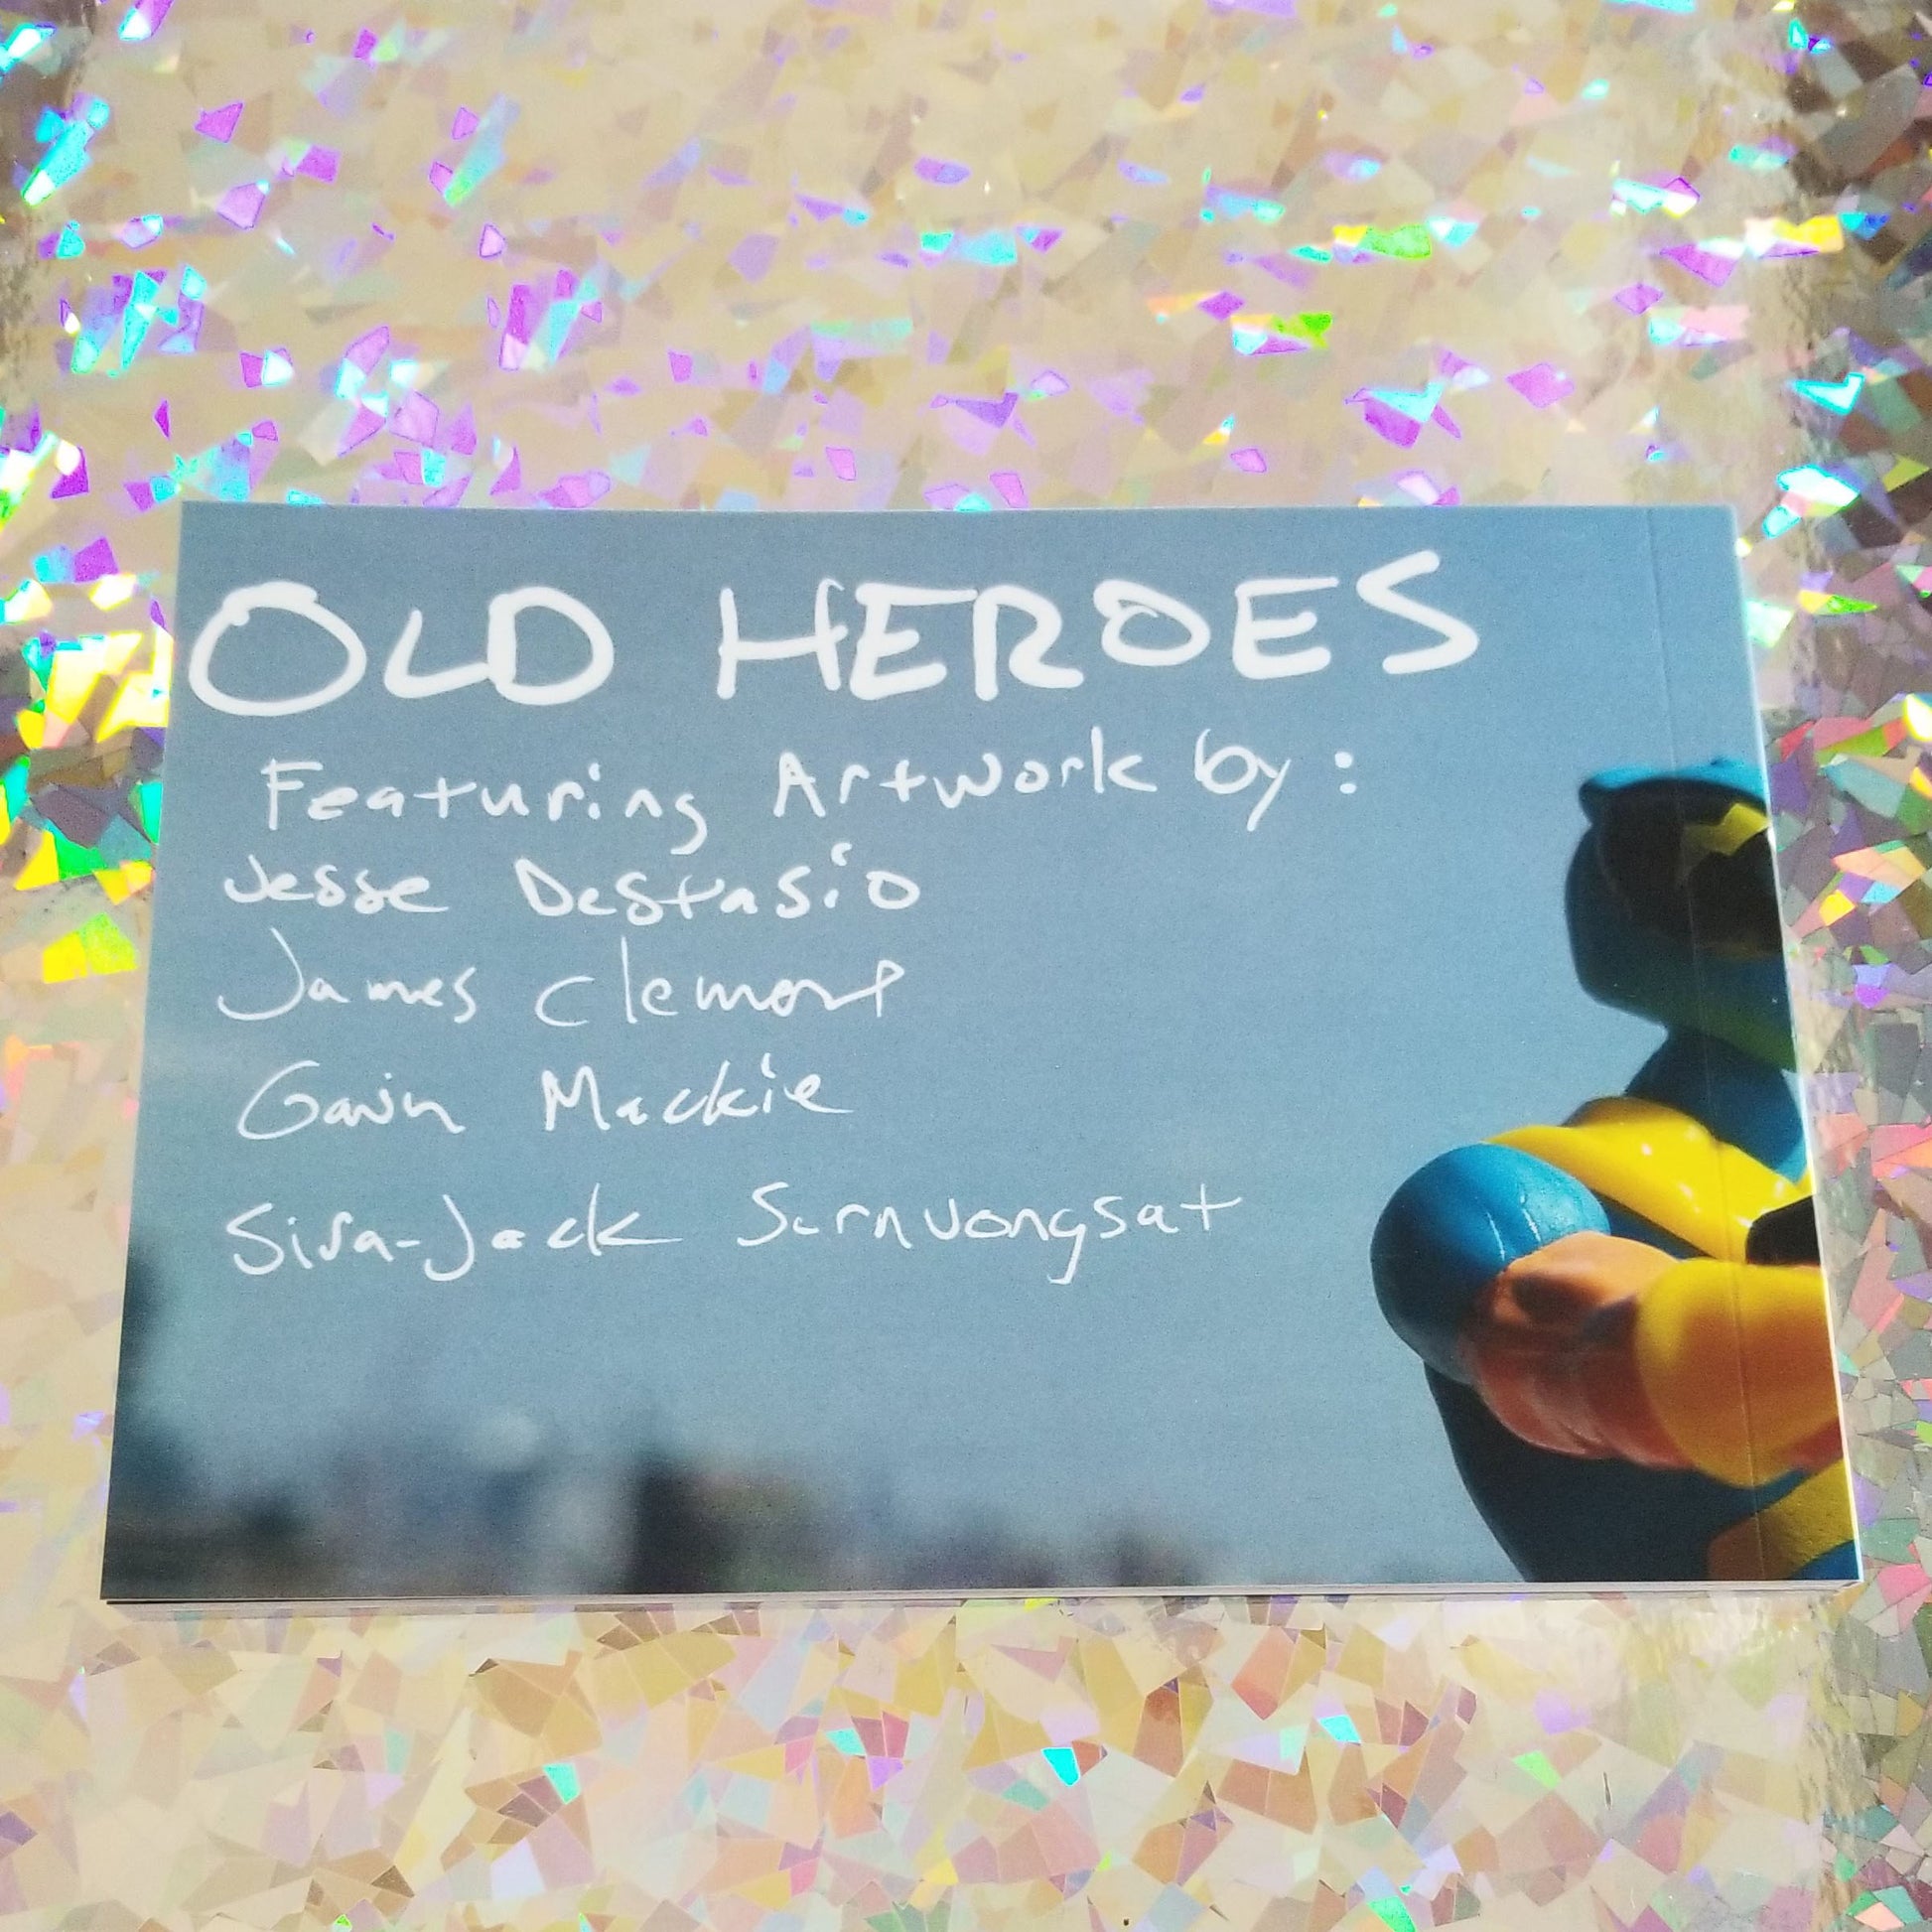 OLD HEROES
Featuring Artwork by:
Jesse Destasio
James Clement
Gavin Mackie
Sira-Jack